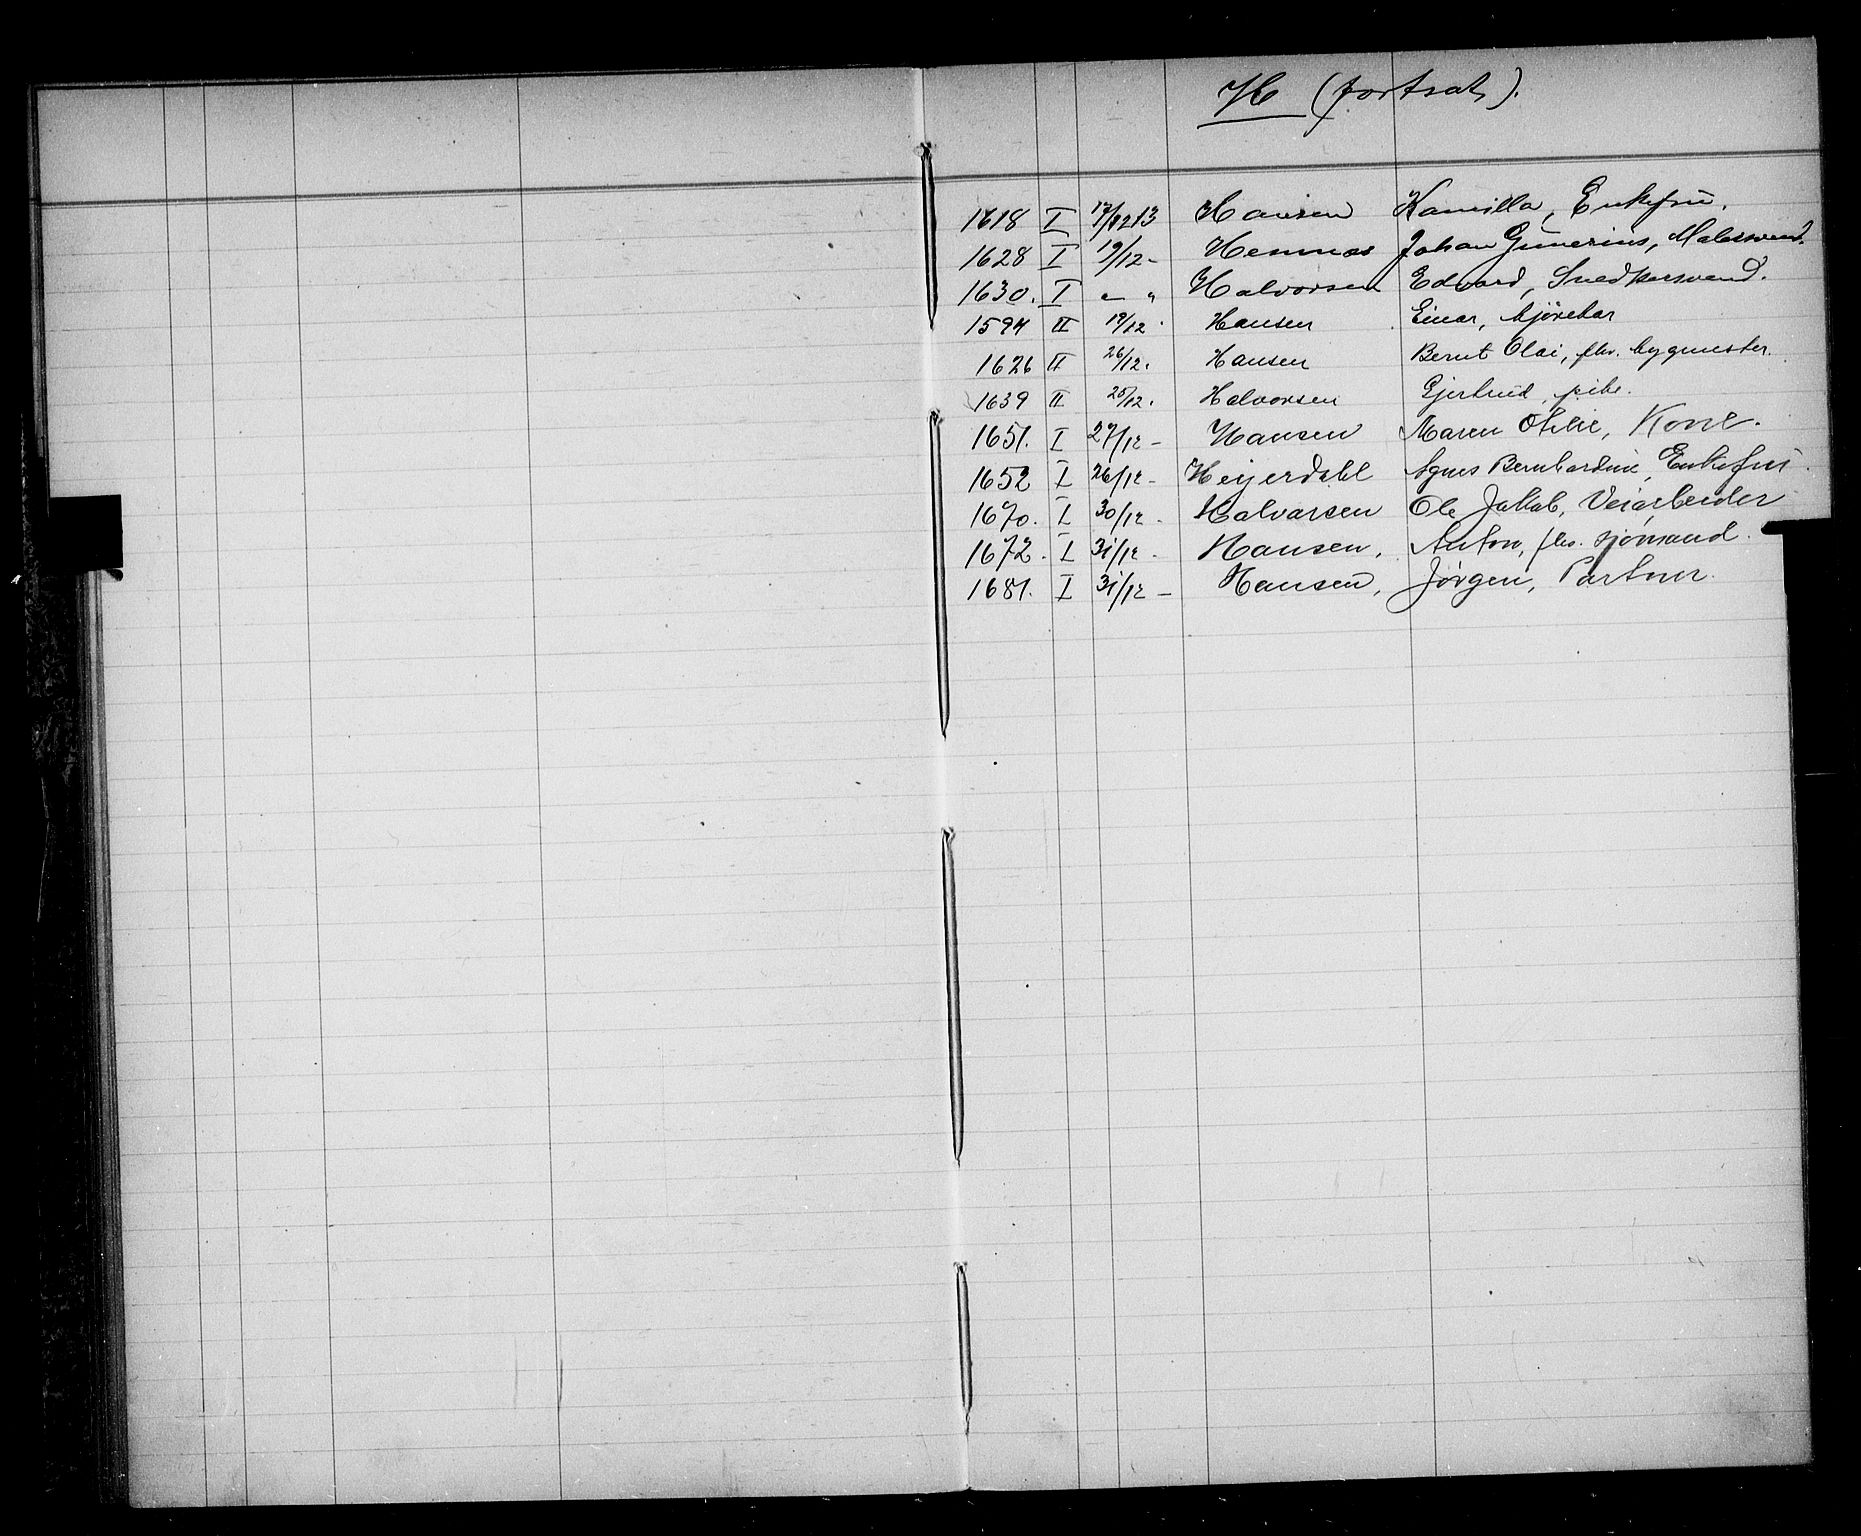 H (fortsat).
1618 I 17/12 13 Hansen Kamilla, Enkefru.
1628 I 19/12 - Hemnæs Johan Gunerius, Malersvend.
1630. I " " Halvorsen Edvard, Snedkersvend.
1594 II 19/12 . Hansen Einar, kjørekar
1626 II 26/12. Hansen Bernt Olai, fhv. bygmester.
1639 II 25/12. Halvorsen Gjertrud, pike.
1651. I 27/12 - Hansen Maren Otilie, Kone.
1652 I 26/12 - Heyerdahl Agnes Bernhardine, Enkefru.
1670. I 30/12 - Halvorsen Ole Jakob, Veiarbeider
1672. I 31/12 - Hansen, Anton, fhv. sjømand.
1681. I 31/12 - Hansen, Jørgen, Partner.